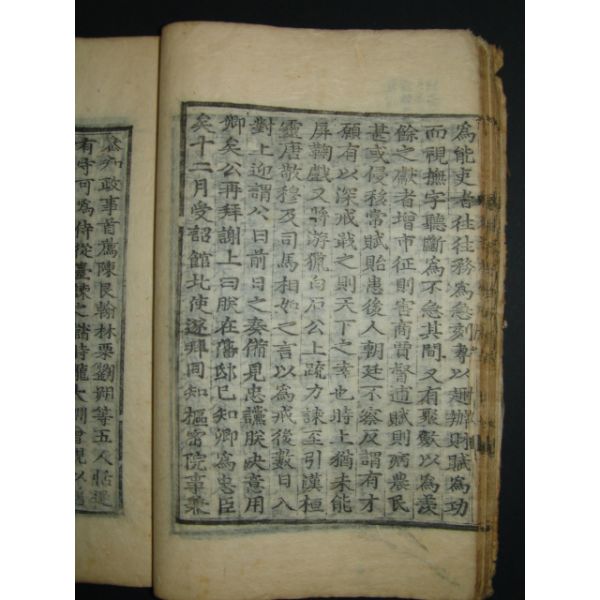 為能吏者往往務為急刻專以趣辦財賦為功
而視撫字聽斷為不急其間又有聚歛以為羨
餘之獻者增市征則害商賈督逋賦則病農民
甚或侵移常賦貽患後人朝廷不察反謂有才
願有以深戒戢之則天下之幸也時上猶未能
屏鞠戲又將游獵白石公上疏力諫至引漢桓
靈唐敬穆及司馬相如之言以為戒後數日入
對上迎謂公曰前日之奏備見忠讜朕決意用
卿矣公再拜謝上曰朕在藩邸已知卿為忠臣
矣十二月受詔館北使遂拜同知樞密院事兼
參知政事首薦陳良翰林栗劉朔等五人恬退
有守可為侍從臺諫之時龍大淵曾覿以